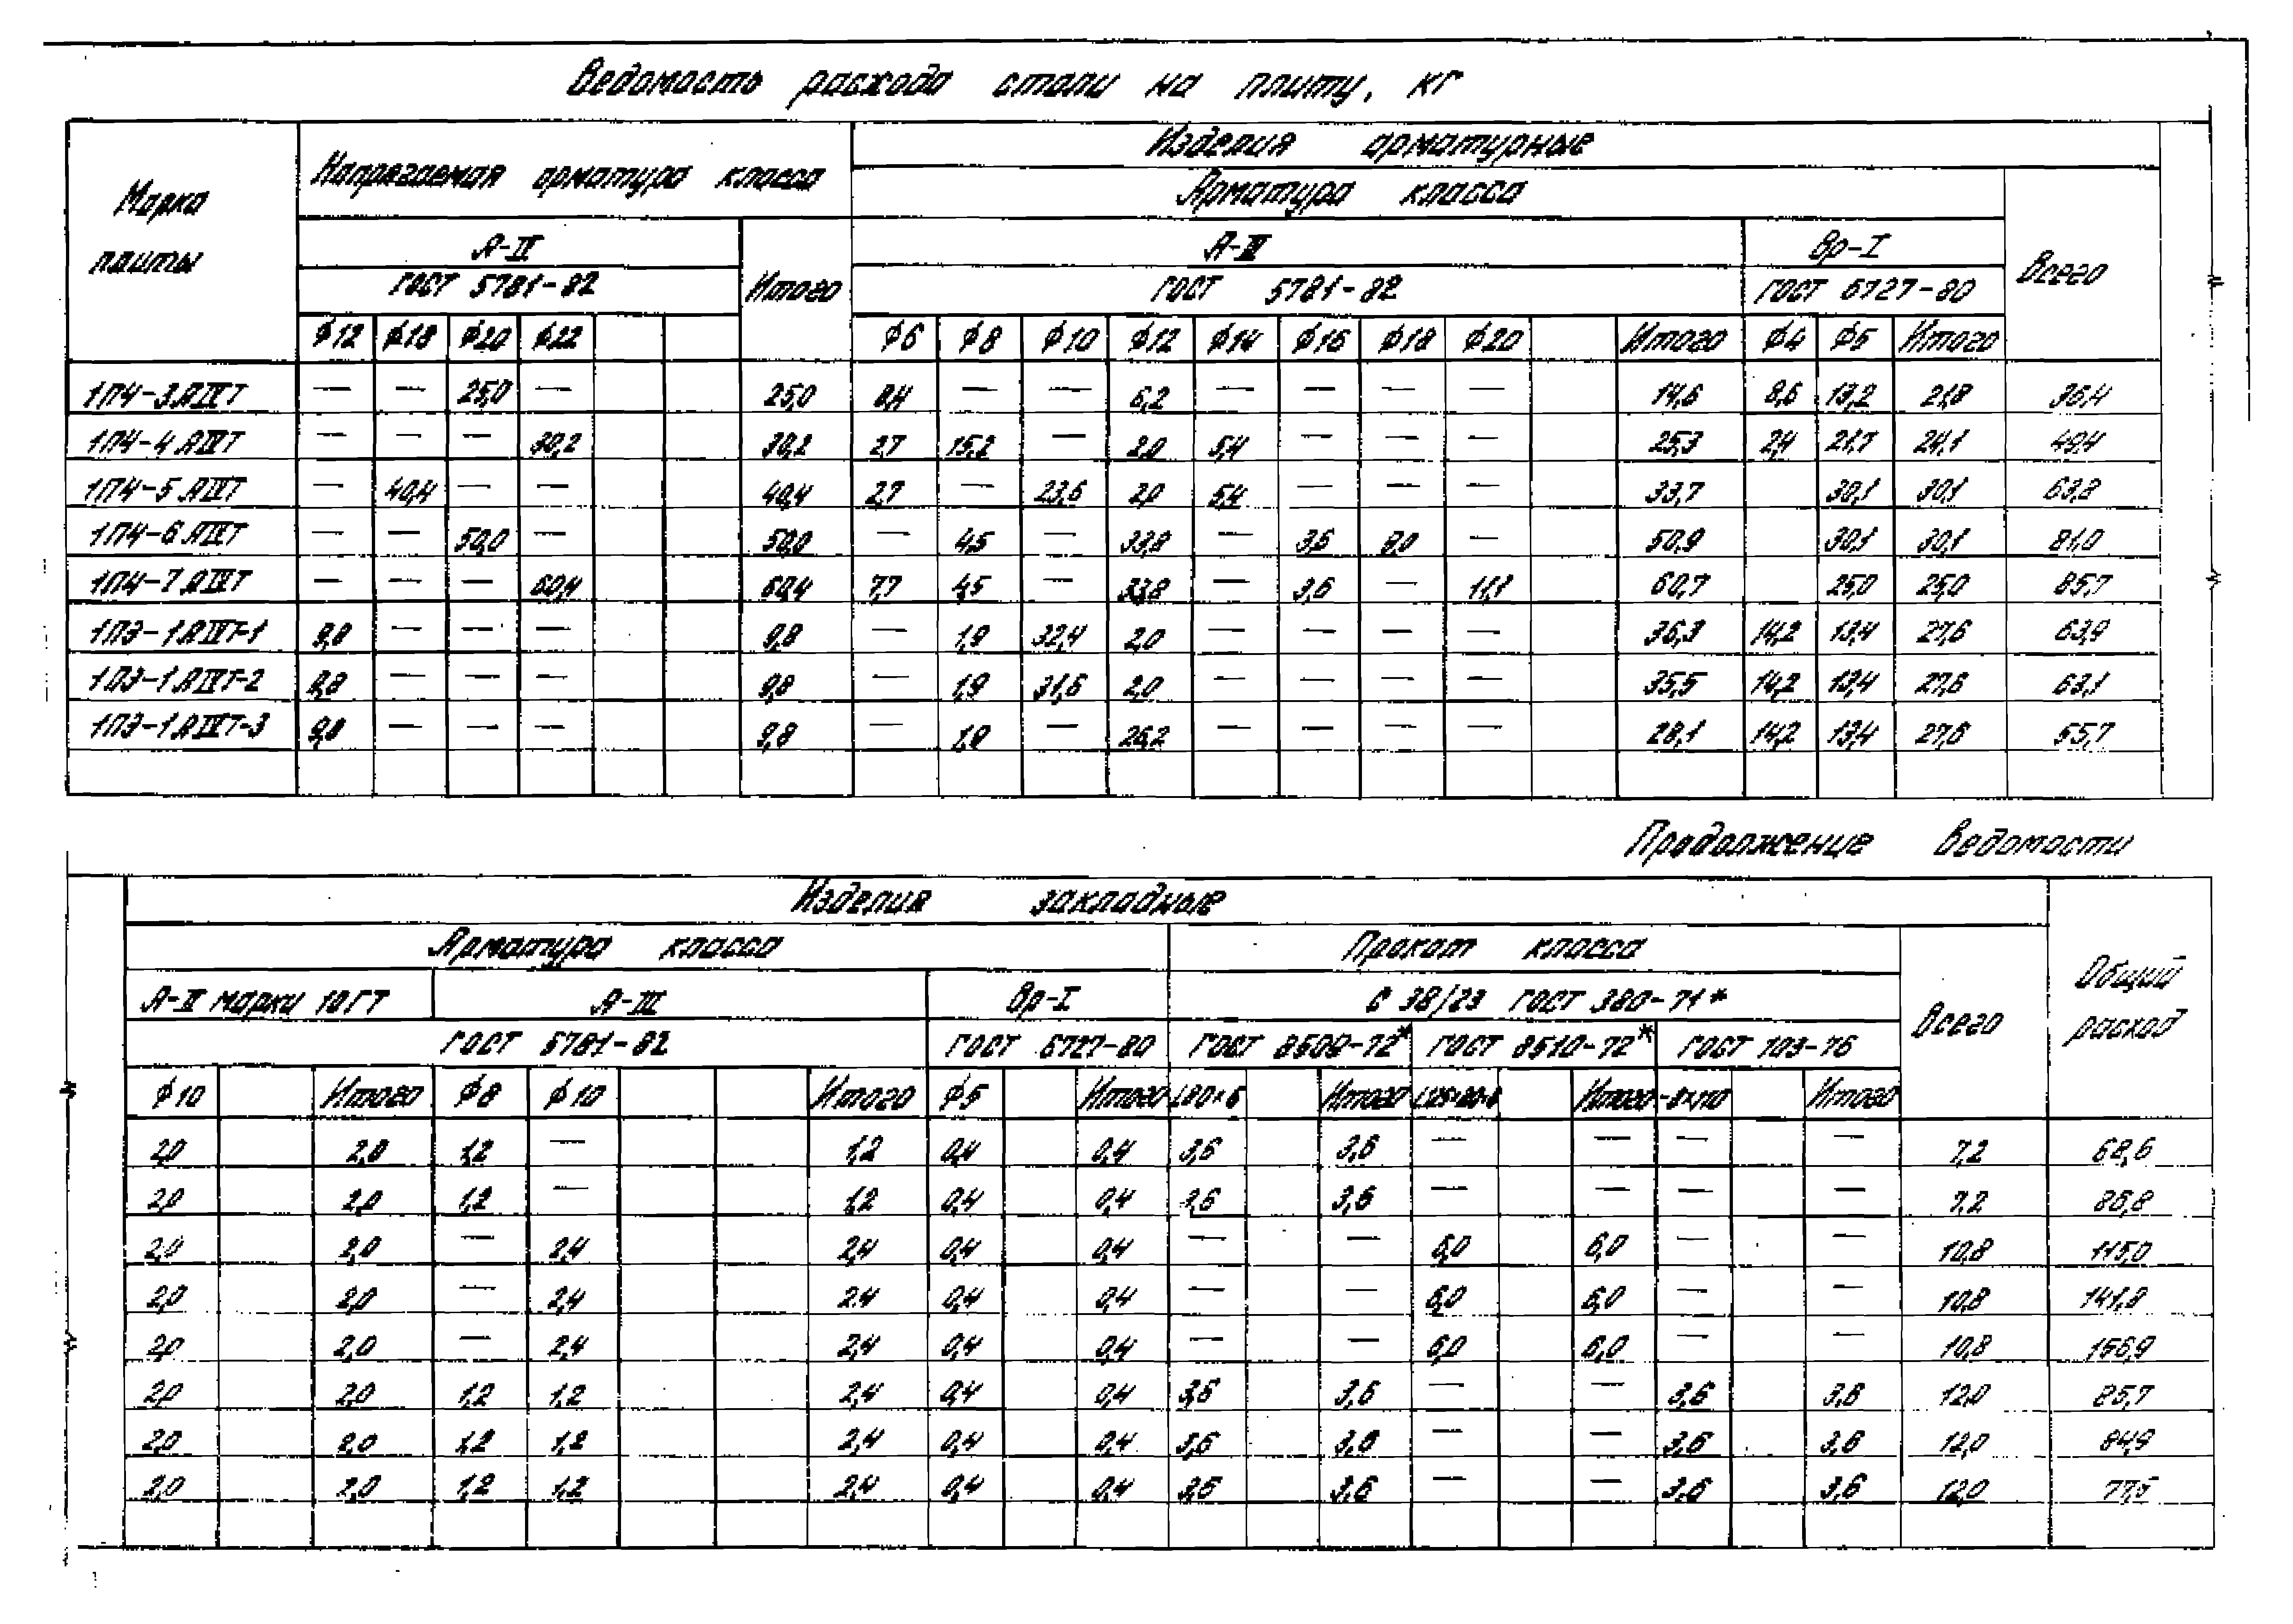 Ведомость расхода стали на плиту, кг
Марка плиты
Напрягаемая арматура класса
Изделия арматурные
Арматура класса
А-IV
Итого
А-III
Вр-I
Всего
ГОСТ 5781-82
ГОСТ 5781-82
ГОСТ 6727-80
ϕ12 ϕ18 ϕ20 ϕ22 ϕ6 ϕ8 ϕ10 ϕ12 ϕ14 ϕ16 ϕ18 ϕ20 Итого ϕ4 ϕ5 Итого
1П4-3.АIVТ — — 25,0 — 25,0 8,4 — — 6,2 — — — — 14,6 8,6 13,2 21,8 36,4
1П4-4.АIVТ — — — 30,2 30,2 2,7 15,2 — 2,0 5,4 — — — 25,3 2,4 21,7 24,1 49,4
1П4-5.АIVТ — 40,4 — — 40,4 2,7 — 23,6 2,0 5,4 — — — 33,7 30,1 30,1 63,8
1П4-6.АIVТ — — 50,0 — 50,0 — 4,5 — 33,8 — 3,6 9,0 — 50,9 30,1 30,1 81,0
1П4-7.АIVТ — — — 60,4 60,4 7,7 4,5 — 33,8 — 3,6 — 11,1 60,7 25,0 25,0 85,7
1ПЭ-1.АIVТ-1 9,8 — — — 9,8 — 1,9 32,4 2,0 — — — — 36,3 14,2 13,4 27,6 63,9
1ПЭ-1.АIVТ-2 9,8 — — — 9,8 — 1,9 31,6 2,0 — — — — 35,5 14,2 13,4 27,6 63,1
1ПЭ-1.АIVТ-3 9,8 — — — 9,8 — 1,9 — 26,2 — — — — 28,1 14,2 13,4 27,6 55,7
Продолжение ведомости
Изделия закладные
Общий расход
Арматура класса
Прокат класса
Всего
А-II марки 10ГТ
А-III
Вр-I
С 38/23 ГОСТ 380-71*
ГОСТ 5781-82
ГОСТ 6727-80
ГОСТ 8509-72*
ГОСТ 8510-72*
ГОСТ 103-76
ϕ10 Итого ϕ8 ϕ10 Итого ϕ5 Итого Итого Итого Итого
2,0 2,0 1,2 — 1,2 0,4 0,4 3,6 3,6 — — — — 7,2 68,6
2,0 2,0 1,2 — 1,2 0,4 0,4 3,6 3,6 — — — — 7,2 86,8
2,0 2,0 — 2,4 2,4 0,4 0,4 — — 6,0 6,0 — — 10,8 115,0
2,0 2,0 — 2,4 2,4 0,4 0,4 — — 6,0 6,0 — — 10,8 141,8
2,0 2,0 — 2,4 2,4 0,4 0,4 — — 6,0 6,0 — — 10,8 156,9
2,0 2,0 1,2 1,2 2,4 0,4 0,4 3,6 3,6 — — 3,6 3,6 12,0 85,7
2,0 2,0 1,2 1,2 2,4 0,4 0,4 3,6 3,6 — — 3,6 3,6 12,0 84,9
2,0 2,0 1,2 1,2 2,4 0,4 0,4 3,6 3,6 — — 3,6 3,6 12,0 77,5